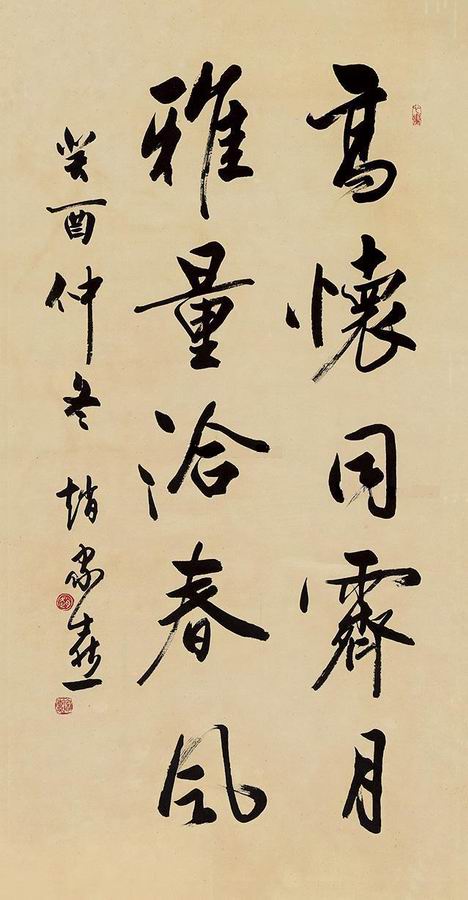 高懷同霽月
雅量洽春風
癸酉仲冬 趙家熹